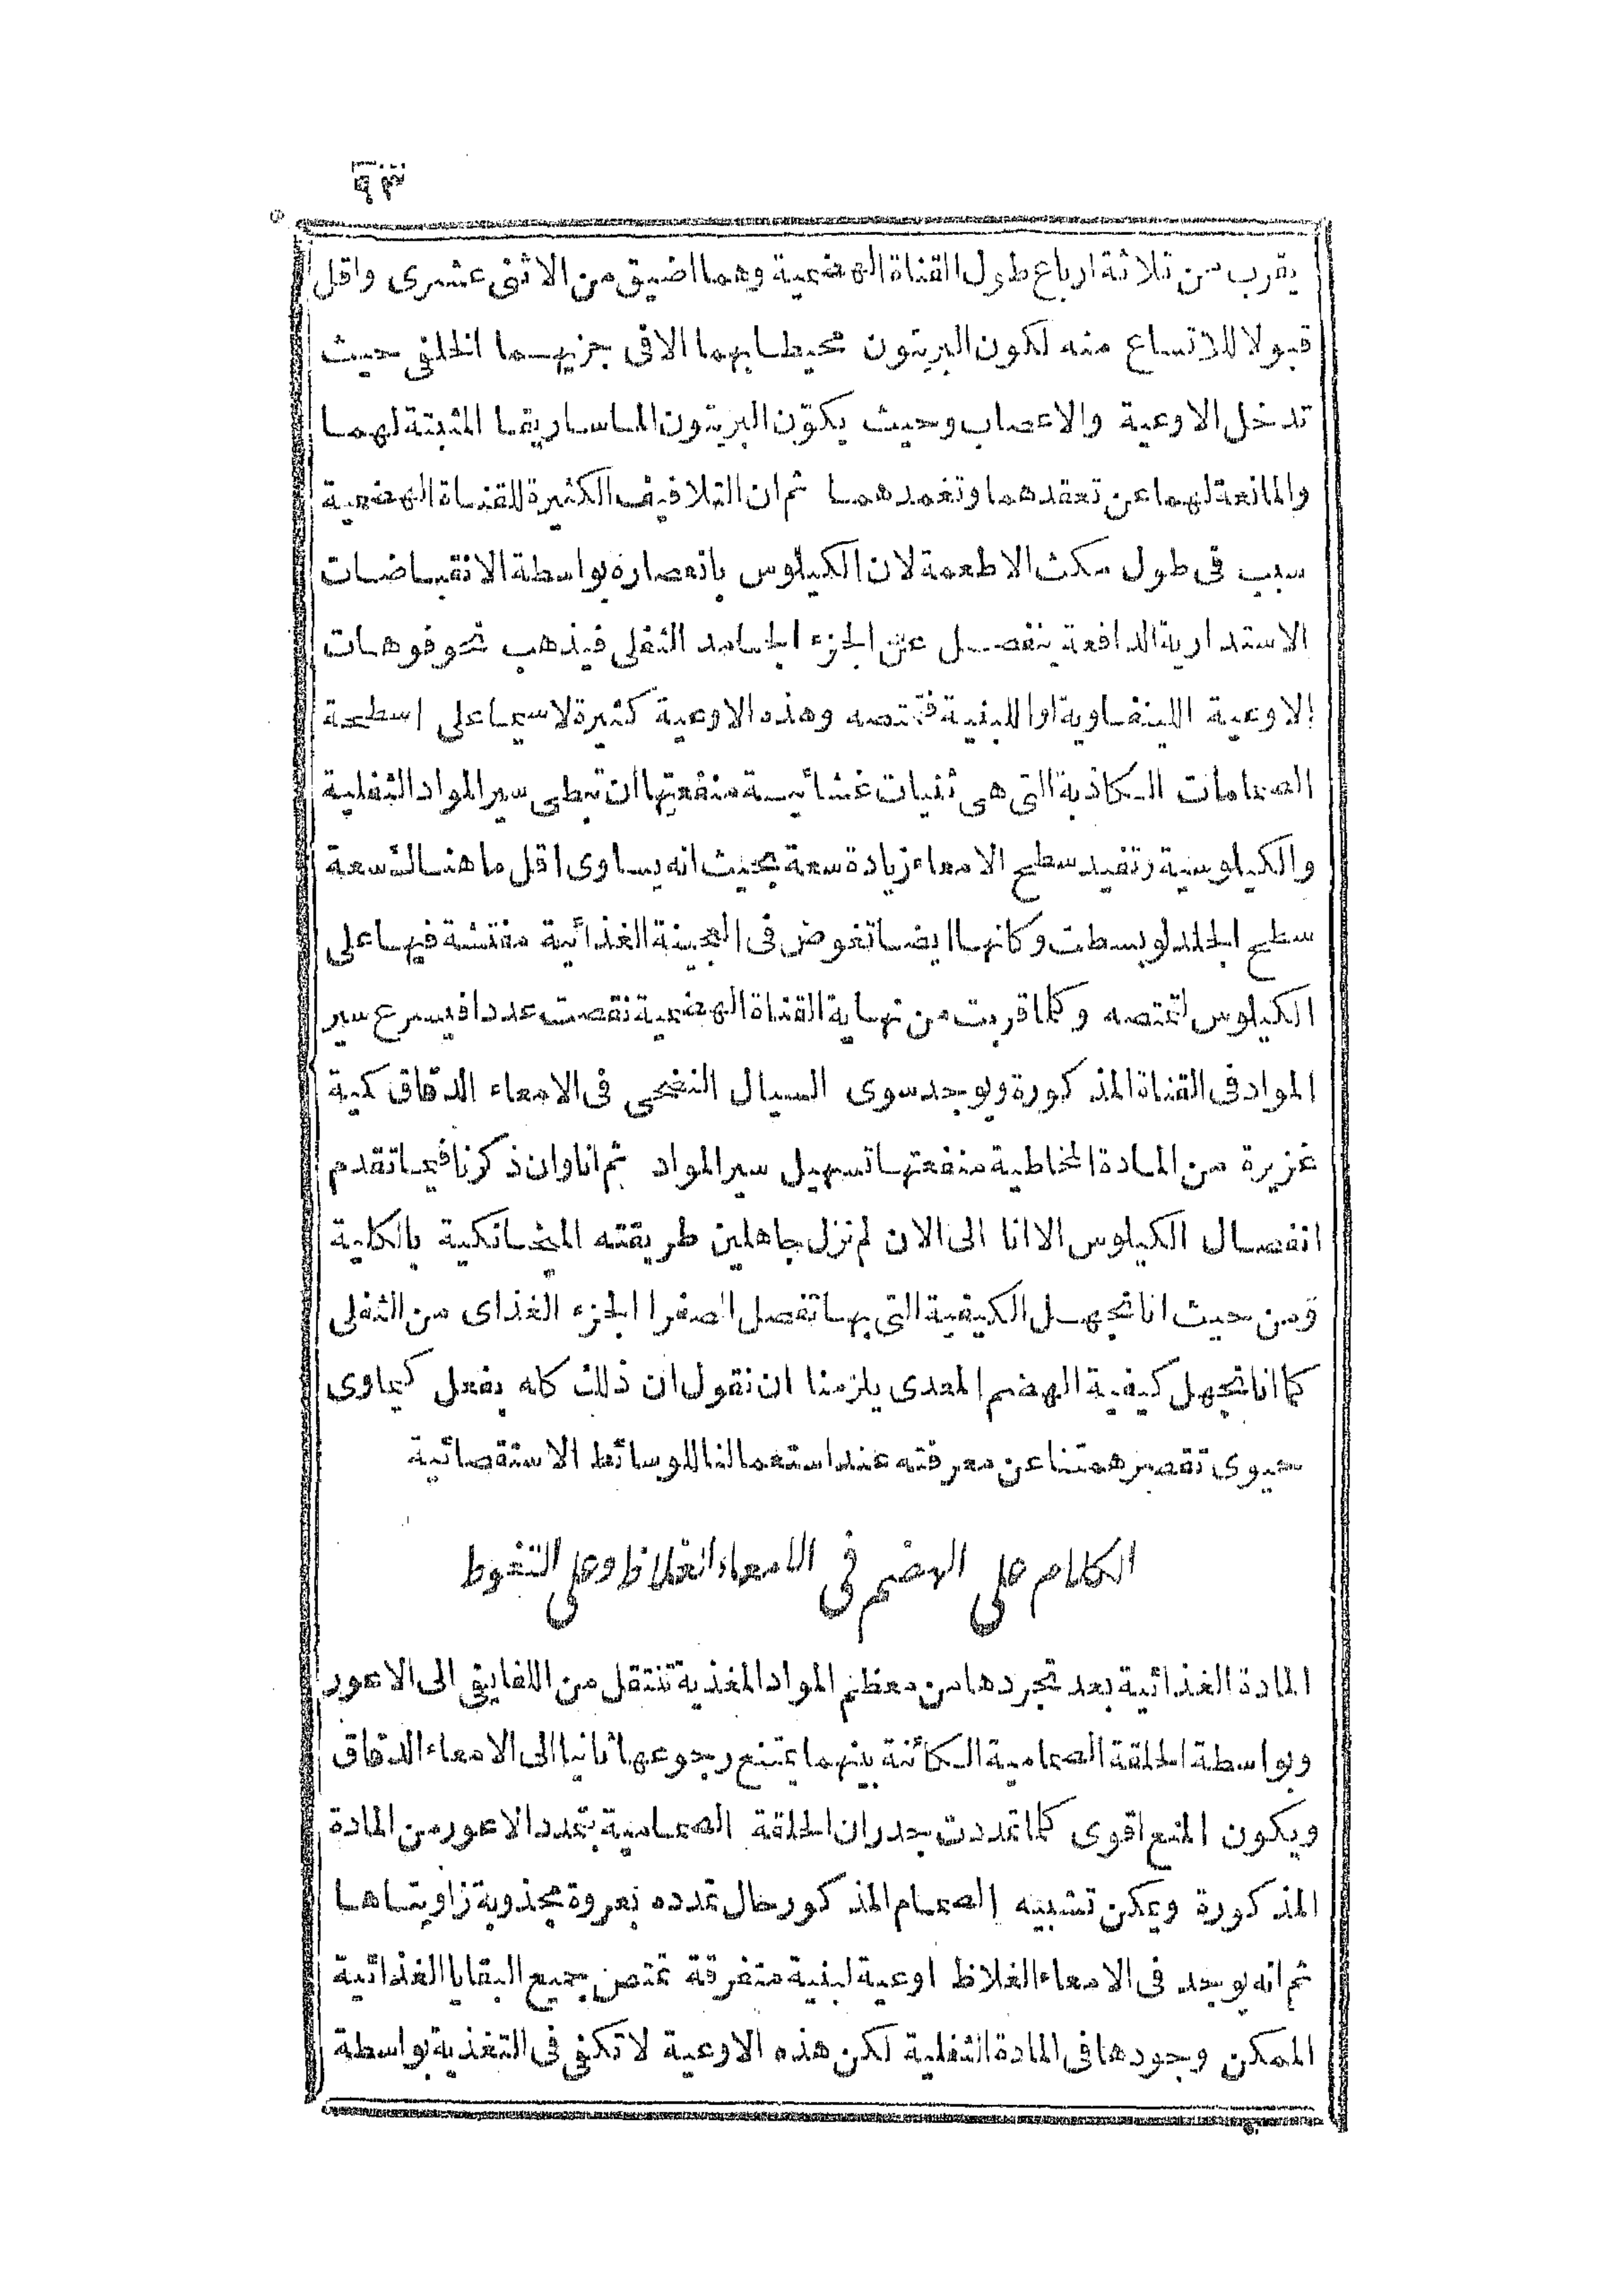 ٩٣
يقرب من ثلاثة ارباع طول القناة الهضمية وهما اضيق من الاثنى عشرى واقل
قبولا للاتساع منه لكون البريتون محيطا بهما الا فى جزيهما الخلفى حيث
تدخل الاوعية والاعصاب وحيث يكوّن البريتون الماساريقا المثبتة لهما
والمانعة لهما عن تعقدهما وتغمدهما ثم ان التلافيف الكثيرة للقناة الهضمية
سبب فى طول مكث الاطعمة لان الكيلوس بانعصاره بواسطة الانقباضات
الاستدارية الدافعة ينفصل عن الجزء الجامد الثفلى فيذهب نحو فوهات
الاوعية اللينفاوية او اللبنية فتمتصه وهذه الاوعية كثيرة لاسيما على اسطحة
الصمامات الكاذبة التى هى ثنيات غشائية منفعتها ان تبطى سير المواد الثفلية
والكيلوسية وتفيد سطح الامعاء زيادة سعة بحيث انه يساوى اقل ما هنالك سعة
سطح الجلد لو بسطت وكانها ايضا تغوص فى العجينة الغذائية مفتشة فيها على
الكيلوس لتمتصه وكلما قربت من نهاية القناة الهضمية نقصت عددا فيسرع سير
المواد فى القناة المذكورة ويوجد سوى السيال النضحى فى الامعاء الدقاق كمية
غزيرة من المادة المخاطية منفعتها تسهيل سير المواد ثم انا وان ذكرنا فيما تقدم
انفصال الكيلوس الا انا الى الان لم نزل جاهلين طريقته الميخانكية بالكلية
ومن حيث انا نجهل الكيفية التى بها تفصل الصفرا الجزء الغذاى من الثفلى
كما انا نجهل كيفية الهضم المعدى يلزمنا ان نقول ان ذلك كله بفعل كيماوى
حيوى تقصر همتنا عن معرفته عند استعمالنا للوسائط الاستقصائية
الكلام على الهضم فى الامعاء الغلاظ وعلى التغوط
المادة الغذائية بعد تجردها من معظم المواد المغذية تنتقل من اللفايفى الى الاعور
وبواسطة الحلقة الصمامية الكائنة بينهما يمتنع رجوعها ثانيا الى الامعاء الدقاق
ويكون المنع اقوى كلما تمددت جدران الحلقة الصمامية بتمدد الاعور من المادة
المذكورة ويمكن تشبيه الصمام المذكور حال تمدده بعروة مجذوبة زاويتاها
ثم انه يوجد فى الامعاء الغلاظ اوعية لبنية متفرقة تمتص جميع البقايا الغذائية
الممكن وجودها فى المادة الثفلية لكن هذه الاوعية لا تكفى فى التغذية بواسطة